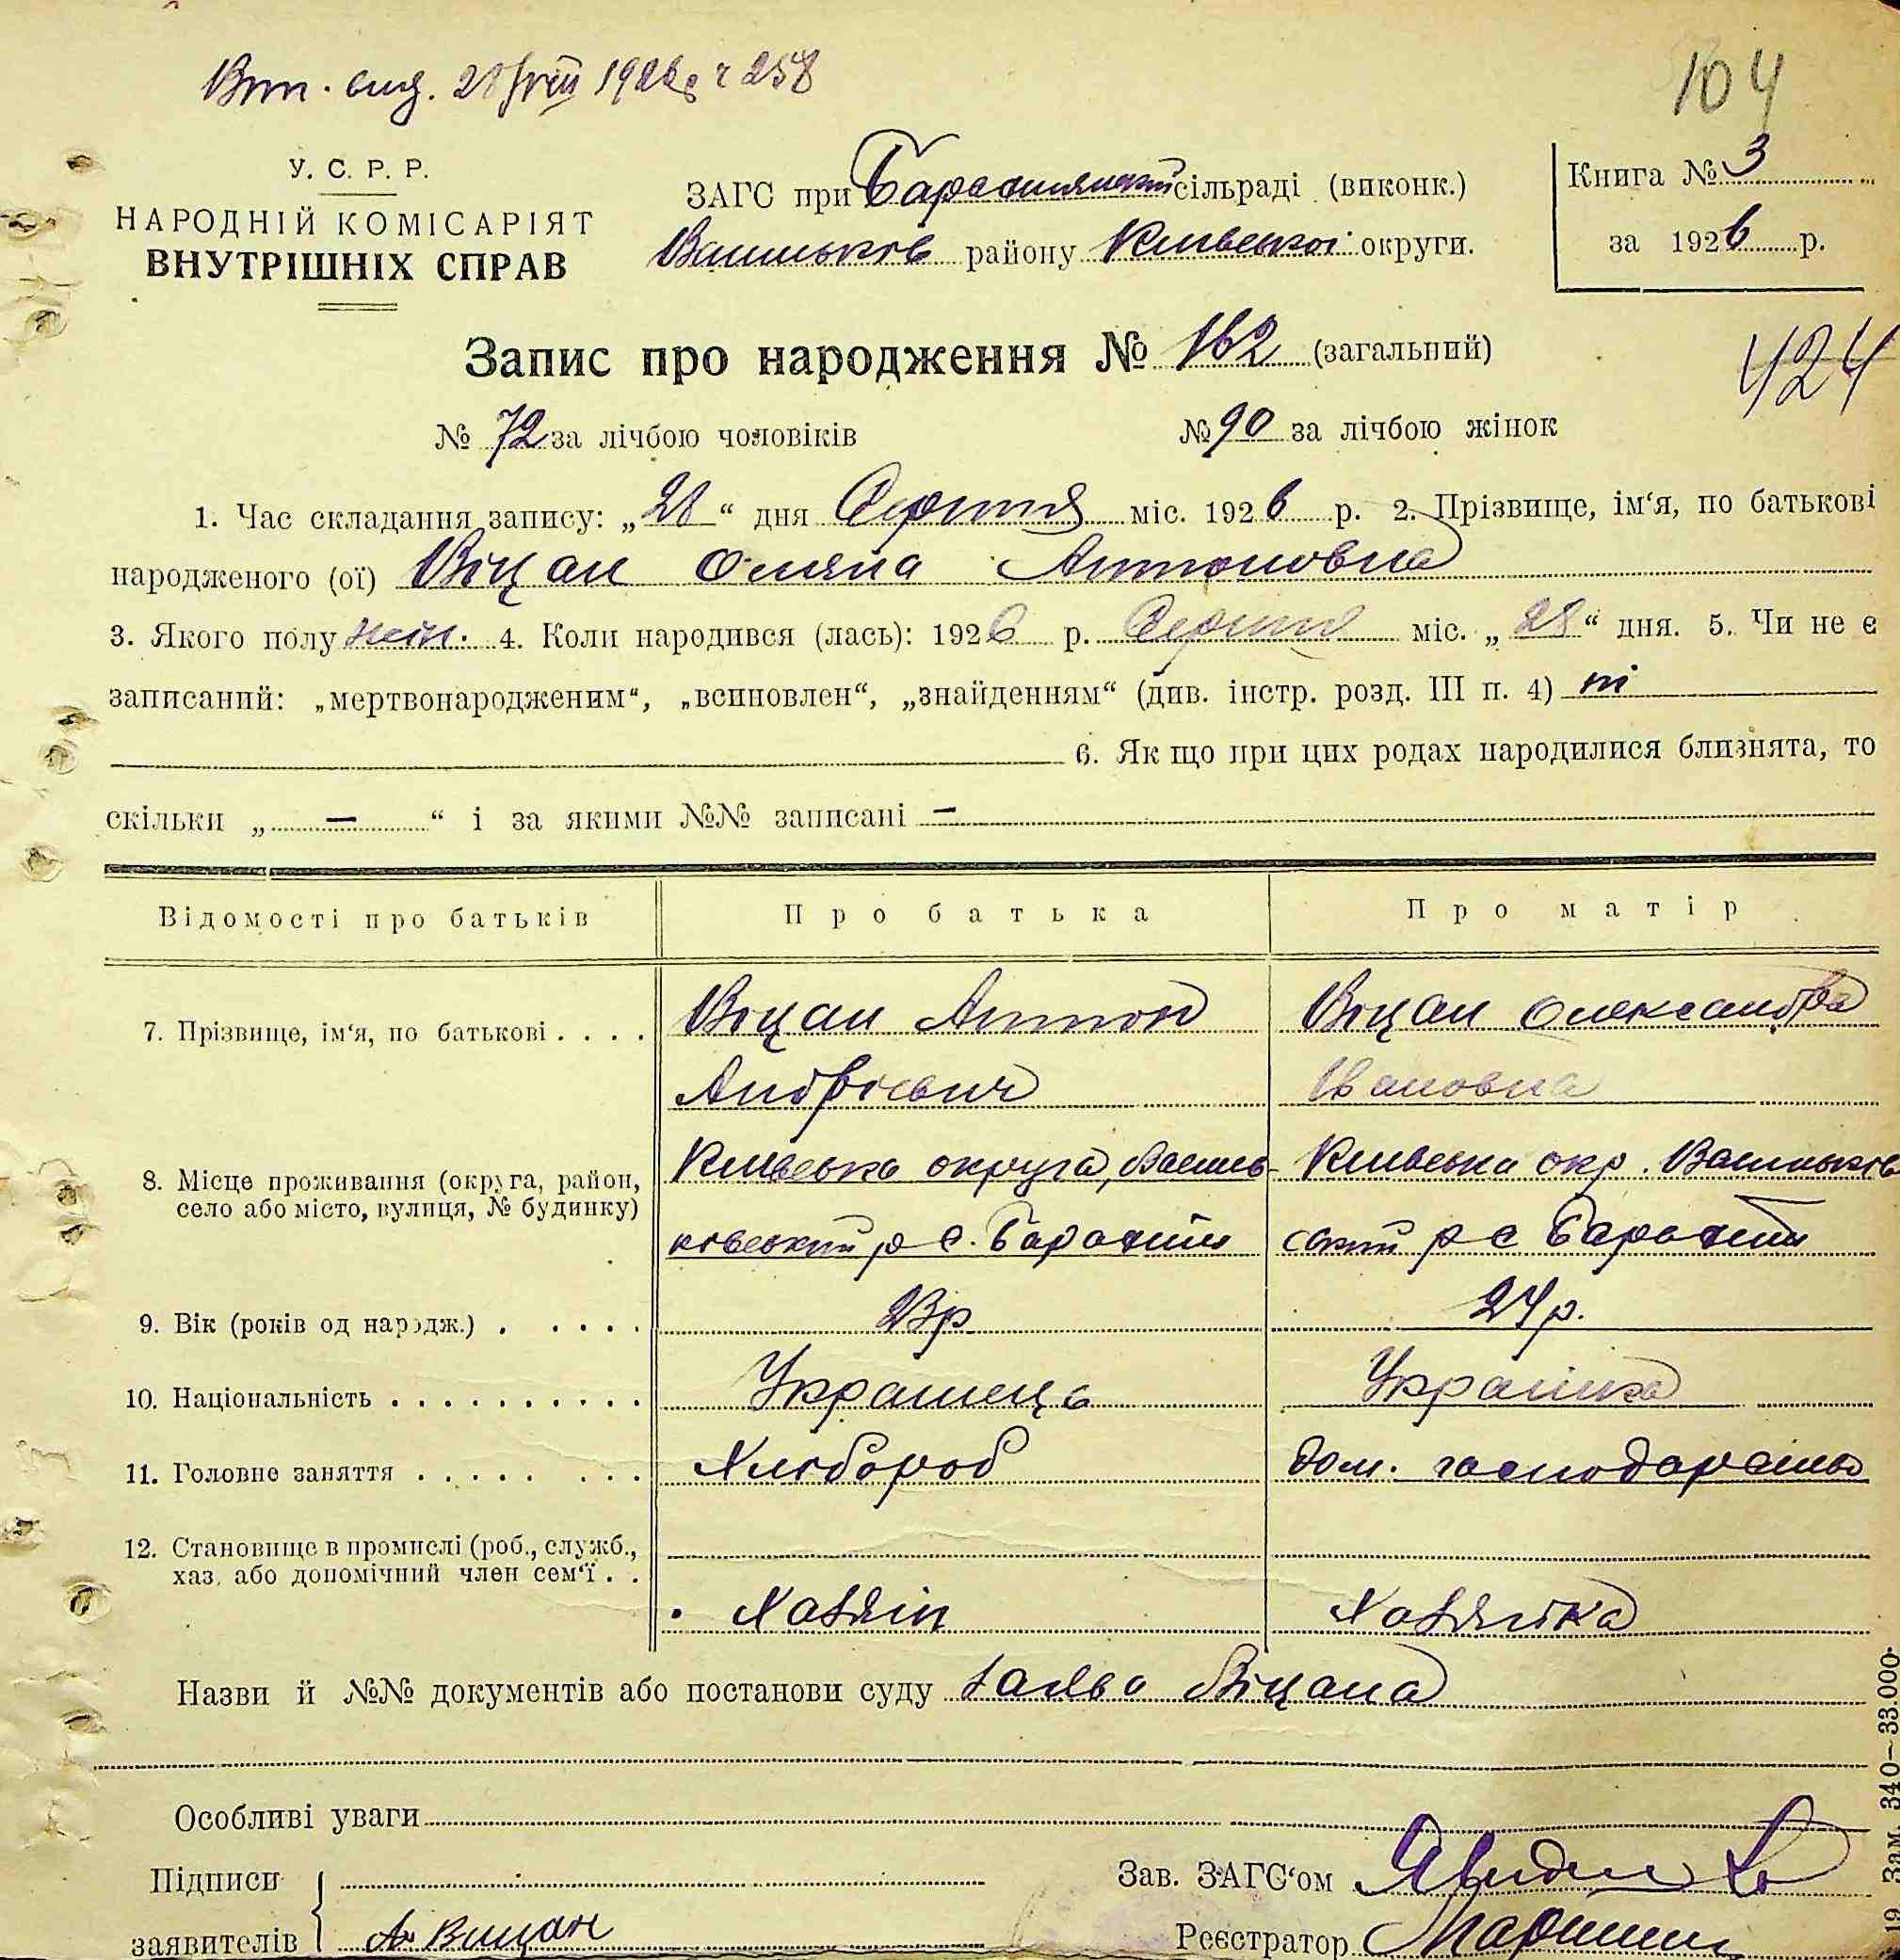 Вип. вид. 28/VIII 1926 р ч 258
104
У. С. Р. Р.
НАРОДНІЙ КОМІСАРІЯТ
ВНУТРІШНІХ СПРАВ
ЗАГС при сільраді (виконк.)
Васильків району Київської округи.
Книга № 3
за 1926 р.
Запис про народження № 162 (загальний)
424
№ 72 за лічбою чоловіків № 90 за лічбою жінок
1. Час складання запису: „28“ дня Серпня міс. 1926 р. 2. Прізвище, ім‘я, по батькові
народженого (ої) Віцан Оляна Антоновна
3. Якого полу жін. 4. Коли народився (лась): 1926 р. Серпня міс. „28“ дня. 5. Чи не є
записаний: „мертвонародженим“, „всиновлен“, „знайденням“ (див. інстр. розд. III п. 4) ні
6. Як що при цих родах народилися близнята, то
скільки „ — “ і за якими №№ записані —
Відомості про батьків Про батька Про матір
7. Прізвище, ім‘я, по батькові . . . . Віцан Антон Віцан Олександра
Андрієвич Івановна
8. Місце проживання (округа, район,
село або місто, вулиця, № будинку)
Київська округа, Василь- Київська окр. Васильків
ківський р с. ський р с
9. Вік (років од народж.) . . . . . 23р 24р.
10. Національність . . . . . . . . . . Українець Українка
11. Головне заняття . . . . . . . . Хлібороб дом. господарство
12. Становище в промислі (роб., служб.,
хаз. або допомічний член сем‘ї . .
Хазяїн Хазяйка
Назви й №№ документів або постанови суду Заява Віцана
Особливі уваги
Підписи
заявителів А Вицан
Зав. ЗАГС‘ом
Реєстратор
19 Зам. 340—33.000.